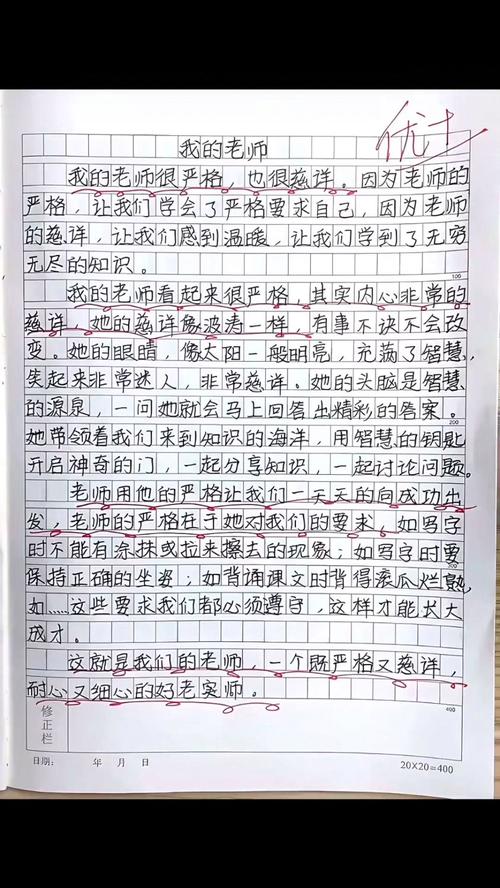 优+
我的老师
我的老师很严格，也很慈详。因为老师的
严格，让我们学会了严格要求自己，因为老师
的慈详，让我们感到温暖，让我们学到了无穷
无尽的知识。
100
我的老师看起来很严格，其实内心非常的
慈详，她的慈详像波涛一样，有事不诀不会改
变。她的眼睛，像太阳一般明亮，充满了智慧，
笑起来非常迷人，非常慈详。她的头脑是智慧
的源泉，一问她就会马上回答出精彩的答案。
200
她带领着我们来到知识的海洋，用智慧的钥匙
开启神奇的门，一起分享知识，一起讨论问题。
老师用他的严格让我们一天天的向成功出
发，老师的严格在于她对我们的要求，如写字
时不能有涂抹或拉来擦去的现象；如写字时要
保持正确的坐姿；如背诵课文时背得滚瓜烂熟，
如……这些要求我们都必须遵守，这样才能长大
成才。
这就是我们的老师，一个既严格又慈详，
耐心又细心的好老实师。
400
修正栏
日期： 年 月 日
20×20=400